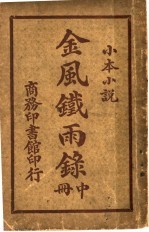 小本小說
金風鐵雨錄
中冊
商務印書館印行